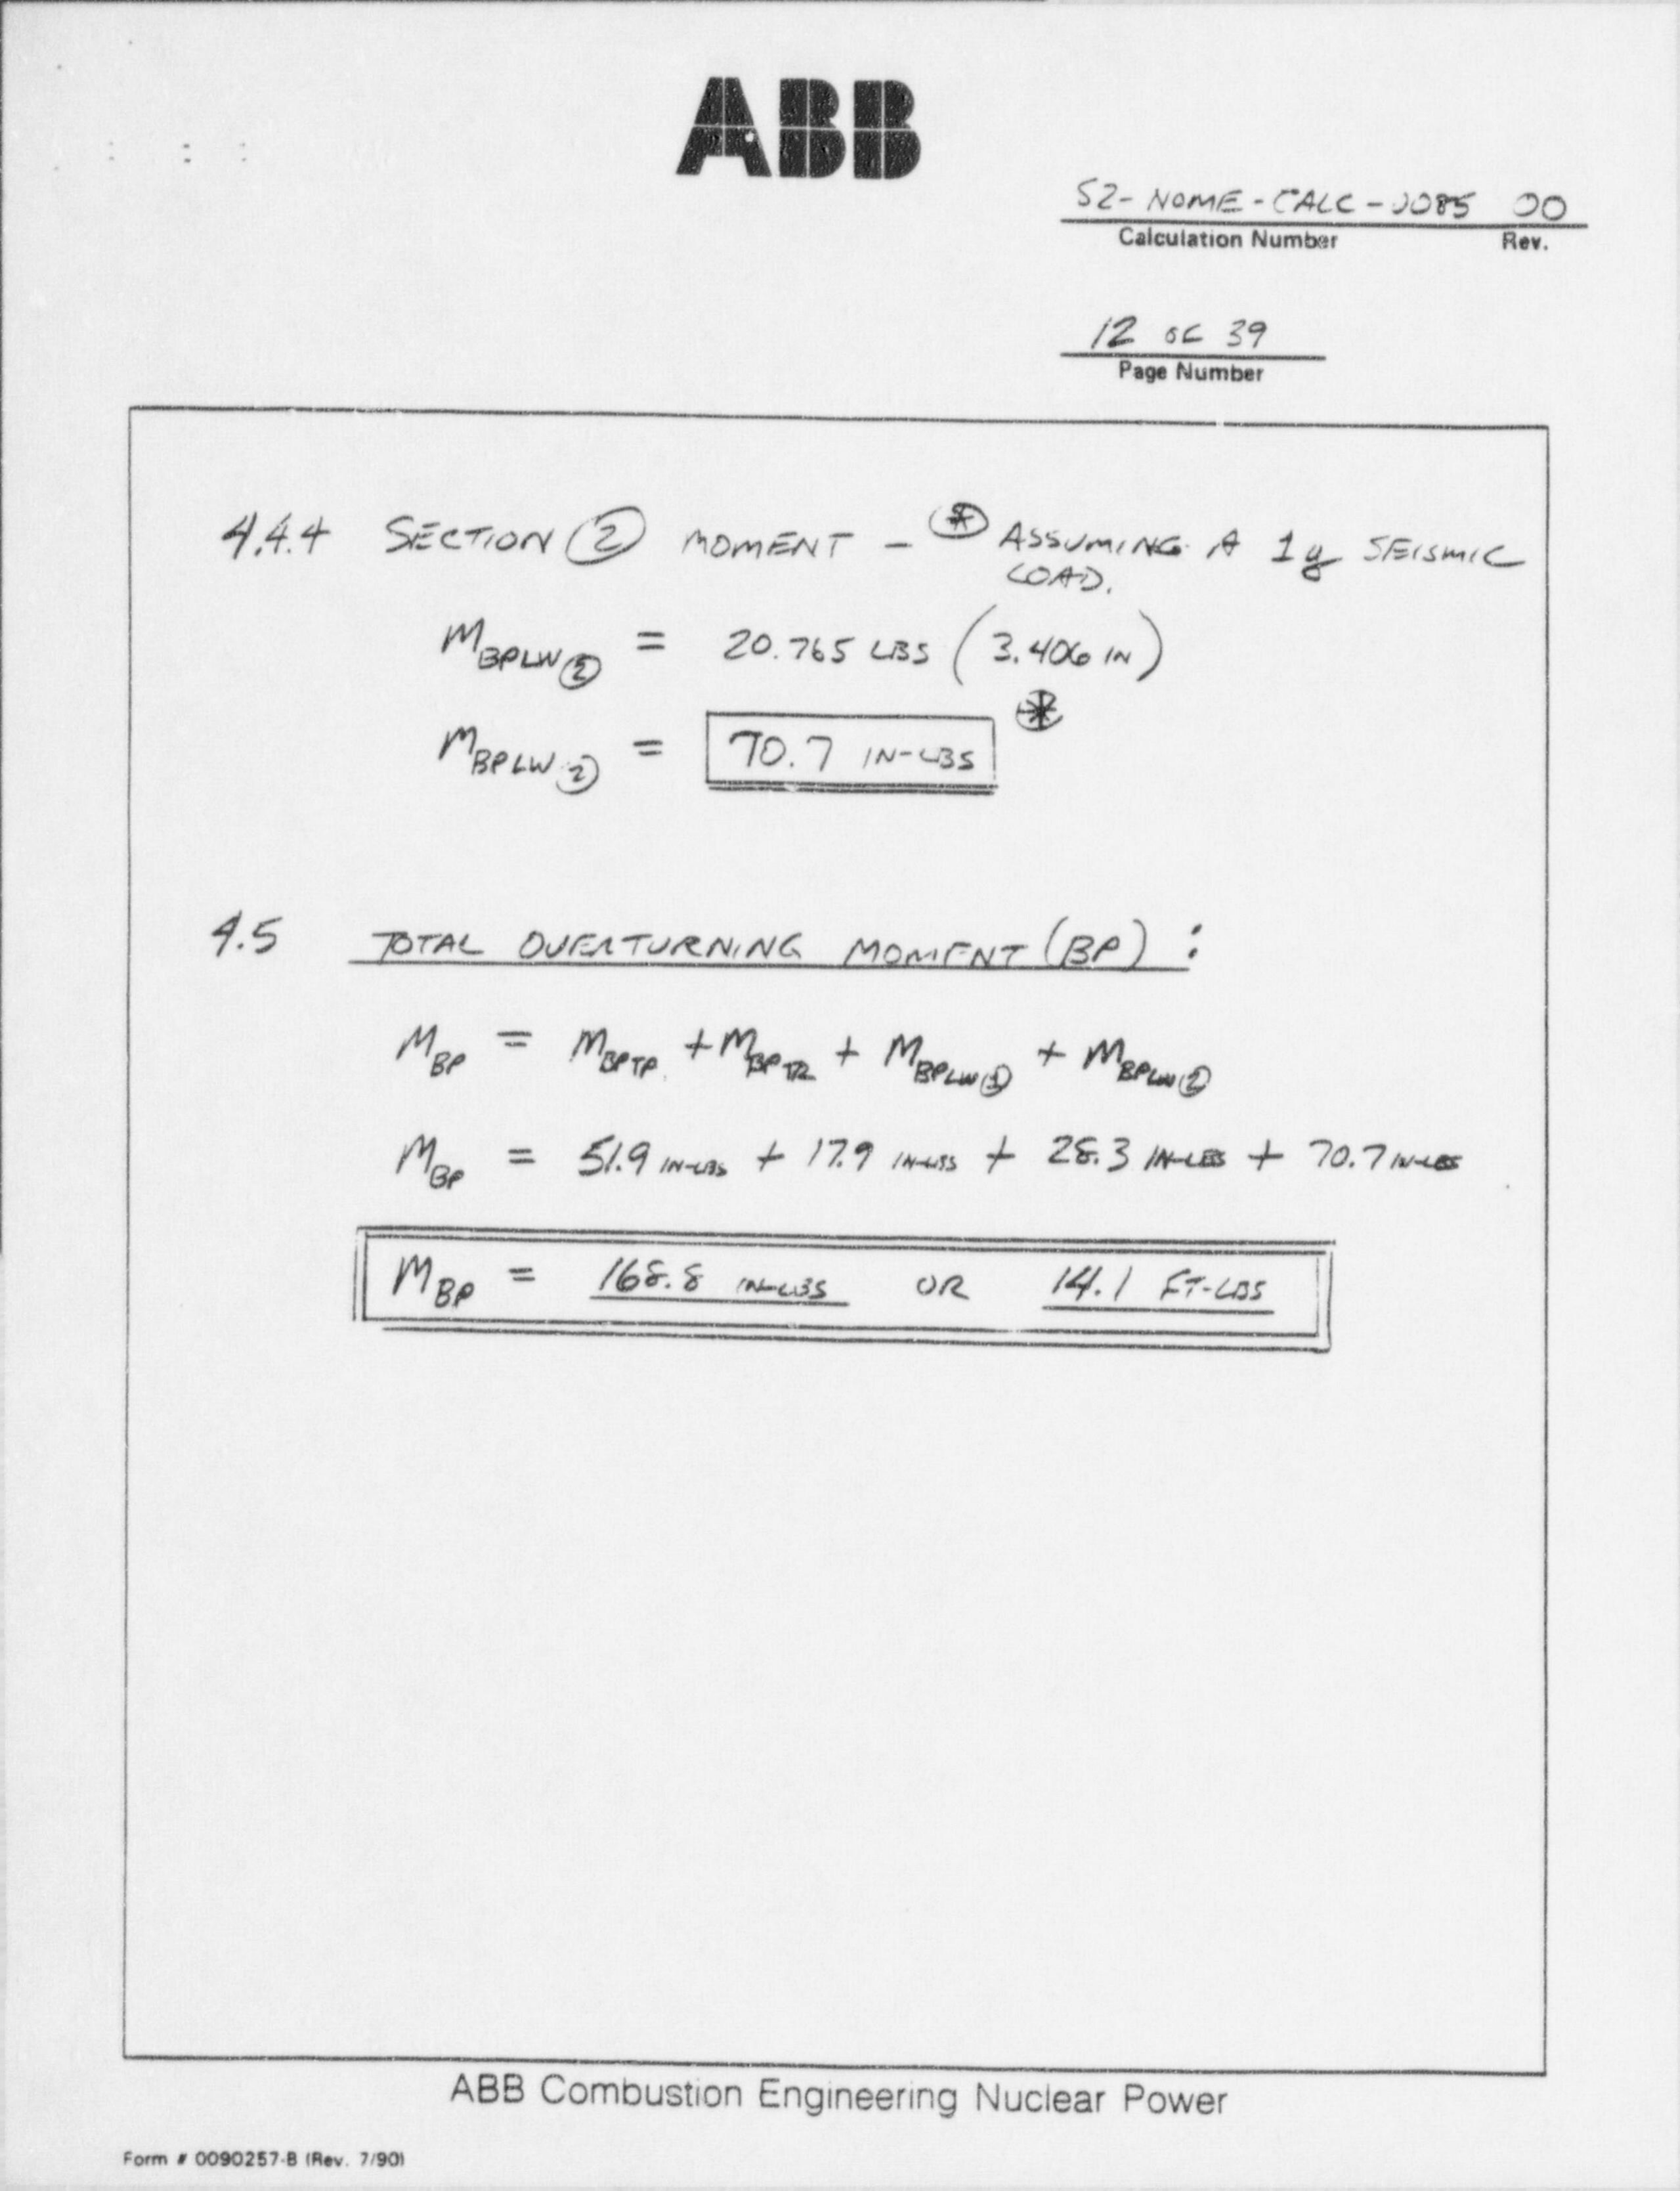 ABB
S2-NOME-CALC-0085 00
Calculation Number Rev.
12 OF 39
Page Number
4.4.4 SECTION ② MOMENT - ⊛ ASSUMING A 1g SEISMIC
LOAD.
M_BPLW② = 20.765 LBS (3.406 IN)
M_BPLW② = 70.7 IN-LBS ⊛
4.5 TOTAL OVERTURNING MOMENT (BP) :
M_BP = M_BPTP + M_BPTR + M_BPLW① + M_BPLW②
M_BP = 51.9 IN-LBS + 17.9 IN-LBS + 28.3 IN-LBS + 70.7 IN-LBS
M_BP = 168.8 IN-LBS OR 14.1 FT-LBS
ABB Combustion Engineering Nuclear Power
Form # 0090257-B (Rev. 7/90)